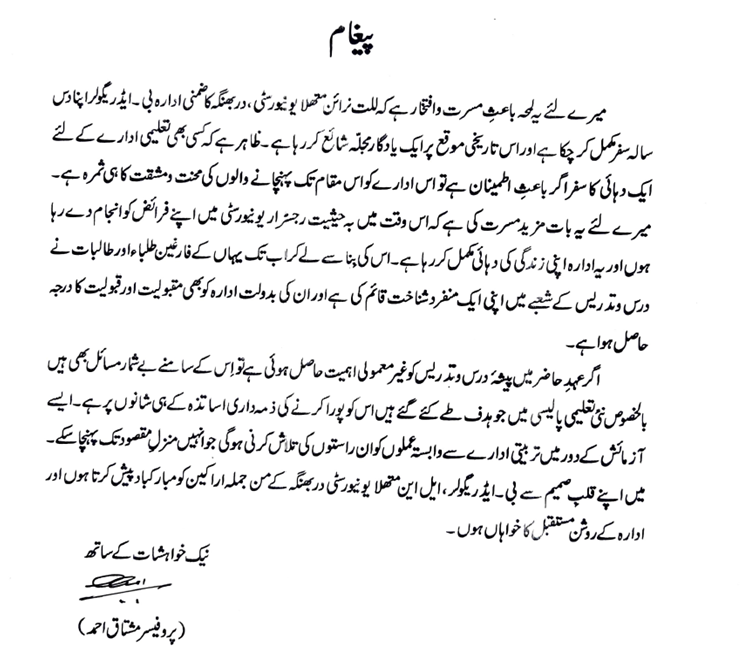 پیغام
میرے لئے یہ لمحہ باعثِ مسرت و افتخار ہے کہ للت نرائن متھلا یونیورسٹی، دربھنگہ کا ضمنی ادارہ بی۔ ایڈ ریگولر اپنا دس
سالہ سفر مکمل کر چکا ہے اور اس تاریخی موقع پر ایک یادگار مجلّہ شائع کر رہا ہے۔ ظاہر ہے کہ کسی بھی تعلیمی ادارے کے لئے
ایک دہائی کا سفر اگر باعثِ اطمینان ہے تو اس ادارے کو اس مقام تک پہنچانے والوں کی محنت و مشقت کا ہی ثمرہ ہے۔
میرے لئے یہ بات مزید مسرت کی ہے کہ اس وقت میں بہ حیثیت رجسٹرار یونیورسٹی میں اپنے فرائض کو انجام دے رہا
ہوں اور یہ ادارہ اپنی زندگی کی دہائی مکمل کر رہا ہے۔ اس کی بِنا سے لے کر اب تک یہاں کے فارغین طلباء اور طالبات نے
درس و تدریس کے شعبے میں اپنی ایک منفرد شناخت قائم کی ہے اور ان کی بدولت ادارہ کو بھی مقبولیت اور قبولیت کا درجہ
حاصل ہوا ہے۔
اگر عہدِ حاضر میں پیشۂ درس و تدریس کو غیر معمولی اہمیت حاصل ہوئی ہے تو اِس کے سامنے بے شمار مسائل بھی ہیں
بالخصوص نئی تعلیمی پالیسی میں جو ہدف طے کئے گئے ہیں اس کو پورا کرنے کی ذمہ داری اساتذہ کے ہی شانوں پر ہے۔ ایسے
آزمائش کے دور میں تربیتی ادارے سے وابستہ عملوں کو ان راستوں کی تلاش کرنی ہوگی جو انہیں منزلِ مقصود تک پہنچا سکے۔
میں اپنے قلبِ صمیم سے بی۔ ایڈ ریگولر، ایل این متھلا یونیورسٹی دربھنگہ کے من جملہ اراکین کو مبارکباد پیش کرتا ہوں اور
ادارہ کے روشن مستقبل کا خواہاں ہوں۔
نیک خواہشات کے ساتھ
(پروفیسر مشتاق احمد)